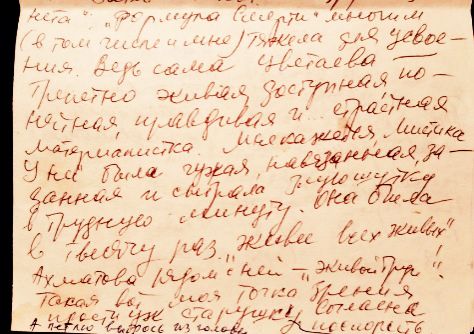 нета". "Формула смерти" многим
(в том числе и мне) тяжела для усвое-
ния. Ведь сама Цветаева —
трепетно живая, доступная, по-
нятная, правдивая и... страстная
материалистка. Мне кажется, мистика
у ней была чужая, навязанная,
занная и сыграла злую шутку
в трудную минуту. Она была
в тысячу раз "живее всех живых"
Ахматова рядом с ней — "живой труп"!
Такая вот моя точка зрения
прости уж старушку
А петлю